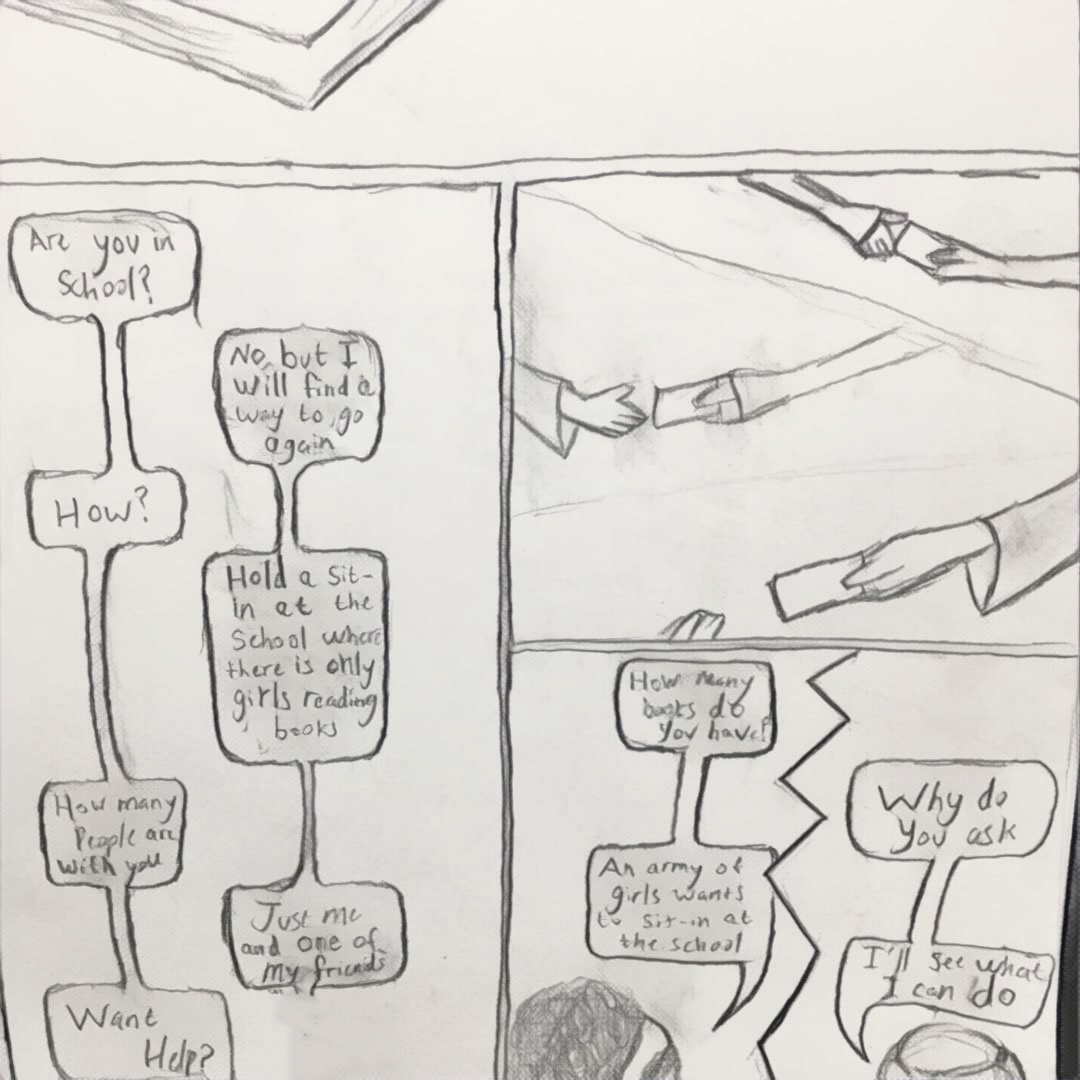 Are you in
School?
No, but I
will find a
way to go
again
How?
Hold a sit-
in at the
School where
there is only
girls reading
books
How many
People are
with you
Just me
and one of
my friends
Want
Help?
How many
books do
you have?
Why do
you ask
An army of
girls wants
to sit-in at
the school
I'll see what
I can do